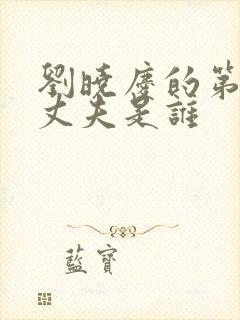 劉曉慶的第
丈夫是誰
藍寶